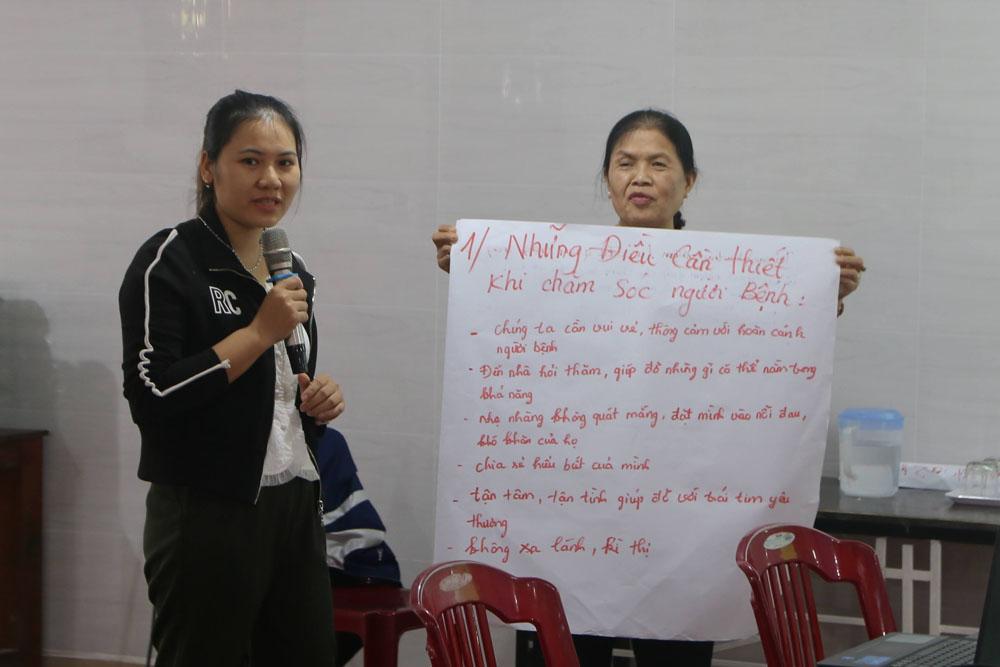 RC
1/ Những Điều Cần thiết
khi chăm sóc người Bệnh :
- chúng ta cần vui vẻ, thông cảm với hoàn cảnh
người bệnh
- Đến nhà hỏi thăm, giúp đỡ những gì có thể nằm trong
khả năng
- nhẹ nhàng không quát mắng, đặt mình vào nỗi đau,
khó khăn của họ
- chia sẻ hiểu biết của mình
- tận tâm, tận tình giúp đỡ với trái tim yêu
thương
- không xa lánh, kì thị